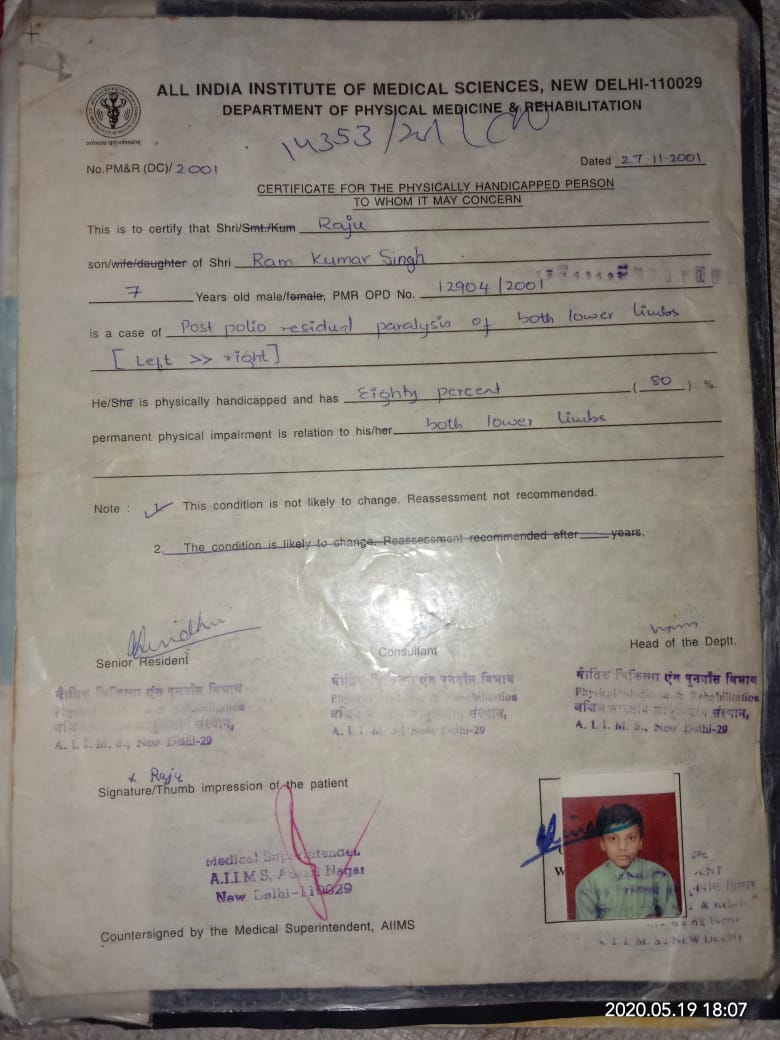 ALL INDIA INSTITUTE OF MEDICAL SCIENCES, NEW DELHI-110029
DEPARTMENT OF PHYSICAL MEDICINE & REHABILITATION
14353/2001
No.PM&R (DC)/ 2001
Dated 27.11.2001
CERTIFICATE FOR THE PHYSICALLY HANDICAPPED PERSON
TO WHOM IT MAY CONCERN
This is to certify that Shri/Smt./Kum Raju
son/wife/daughter of Shri Ram Kumar Singh
7 Years old male/female, PMR OPD No. 12904/2001
is a case of Post polio residual paralysis of both lower limbs
[Left >> right]
He/She is physically handicapped and has Eighty percent (80) %
permanent physical impairment is relation to his/her both lower limbs
Note : 1. This condition is not likely to change. Reassessment not recommended.
2. The condition is likely to change. Reassessment recommended after years.
Senior Resident
Consultant
Head of the Deptt.
भौतिक चिकित्सा एंव पुनर्वास विभाग
भौतिक चिकित्सा एंव पुनर्वास विभाग
भौतिक चिकित्सा एंव पुनर्वास विभाग
Physical Medicine & Rehabilitation
Physical Medicine & Rehabilitation
Physical Medicine & Rehabilitation
संस्थान,
संस्थान,
संस्थान,
A. I. I. M. S., New Delhi-29
A. I. I. M. S., New Delhi-29
A. I. I. M. S., New Delhi-29
x Raju
Signature/Thumb impression of the patient
Medical Superintendent
A.I.I M S, Ansari Nagar
New Delhi-110029
Countersigned by the Medical Superintendent, AIIMS
A. I. I. M. S., NEW DELHI
2020.05.19 18:07